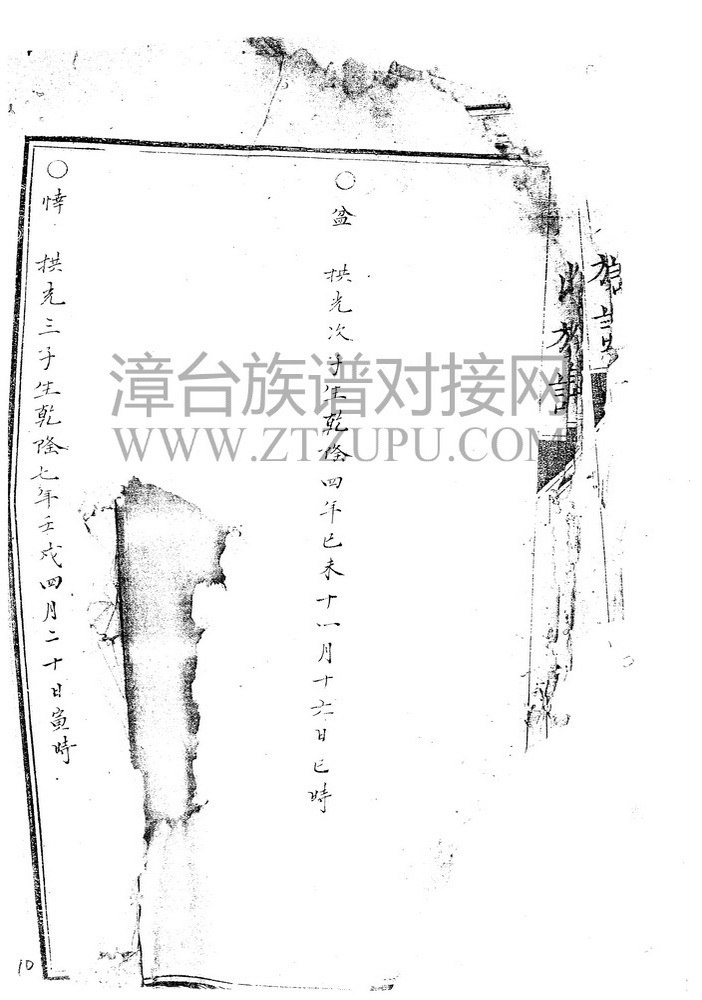 族譜
山族譜
○盆 拱光次子生乾隆四年己未十一月十六日巳時
○悻 拱光三子生乾隆七年壬戌四月二十日寅時
漳台族谱对接网
WWW.ZTZUPU.COM
10